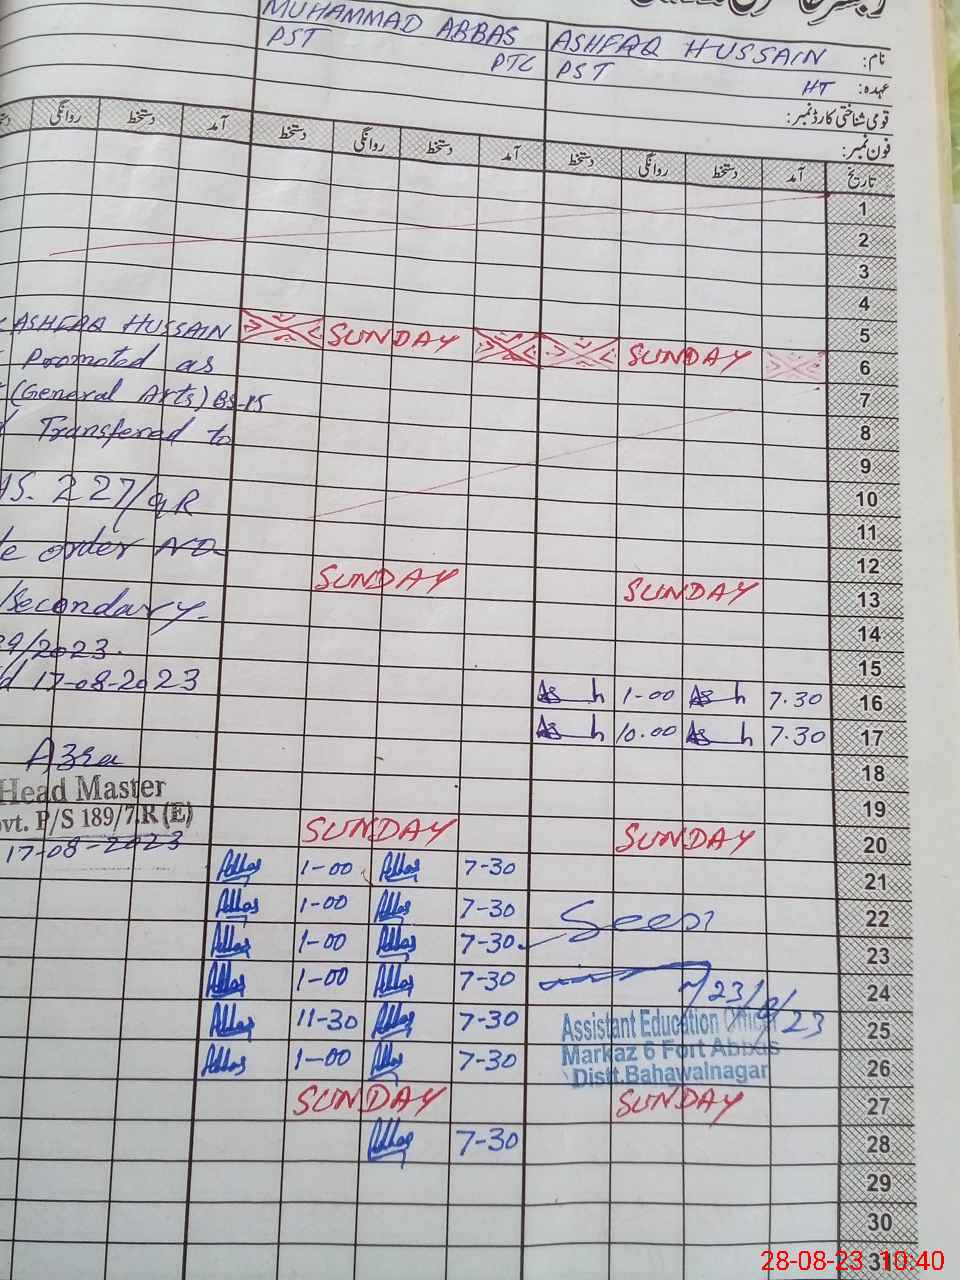 MUHAMMAD ABBAS
ASHFAQ HUSSAIN
نام:
PST
PTC
PST
HT
عہدہ:
قومی شناختی کارڈ نمبر:
فون نمبر:
روانگی دستخط آمد دستخط روانگی دستخط آمد دستخط روانگی دستخط آمد تاریخ
1
2
3
4
5
ASHFAQ HUSSAIN SUNDAY SUNDAY 6
Promoted as
(General Arts) BS-15 7
Transferred to 8
9
227/9R 10
11
order NO- 12
SUNDAY SUNDAY 13
/Secondary- 14
/2023. 15
17-08-2023 1-00 7.30 16
10.00 7.30 17
Azra 18
Head Master 19
P/S 189/7.R (E) SUNDAY SUNDAY 20
17-08-2023
Abbas 1-00 Abbas 7-30 21
Abbas 1-00 Abbas 7-30 22
Abbas 1-00 Abbas 7-30 23
Seen
Abbas 1-00 Abbas 7-30 24
23/8/23
Abbas 11-30 Abbas 7-30 25
Assistant Education Officer
Markaz 6 Fort Abbas
Distt.Bahawalnagar
Abbas 1-00 Abbas 7-30 26
SUNDAY SUNDAY 27
Abbas 7-30 28
29
30
31
28-08-23 10:40